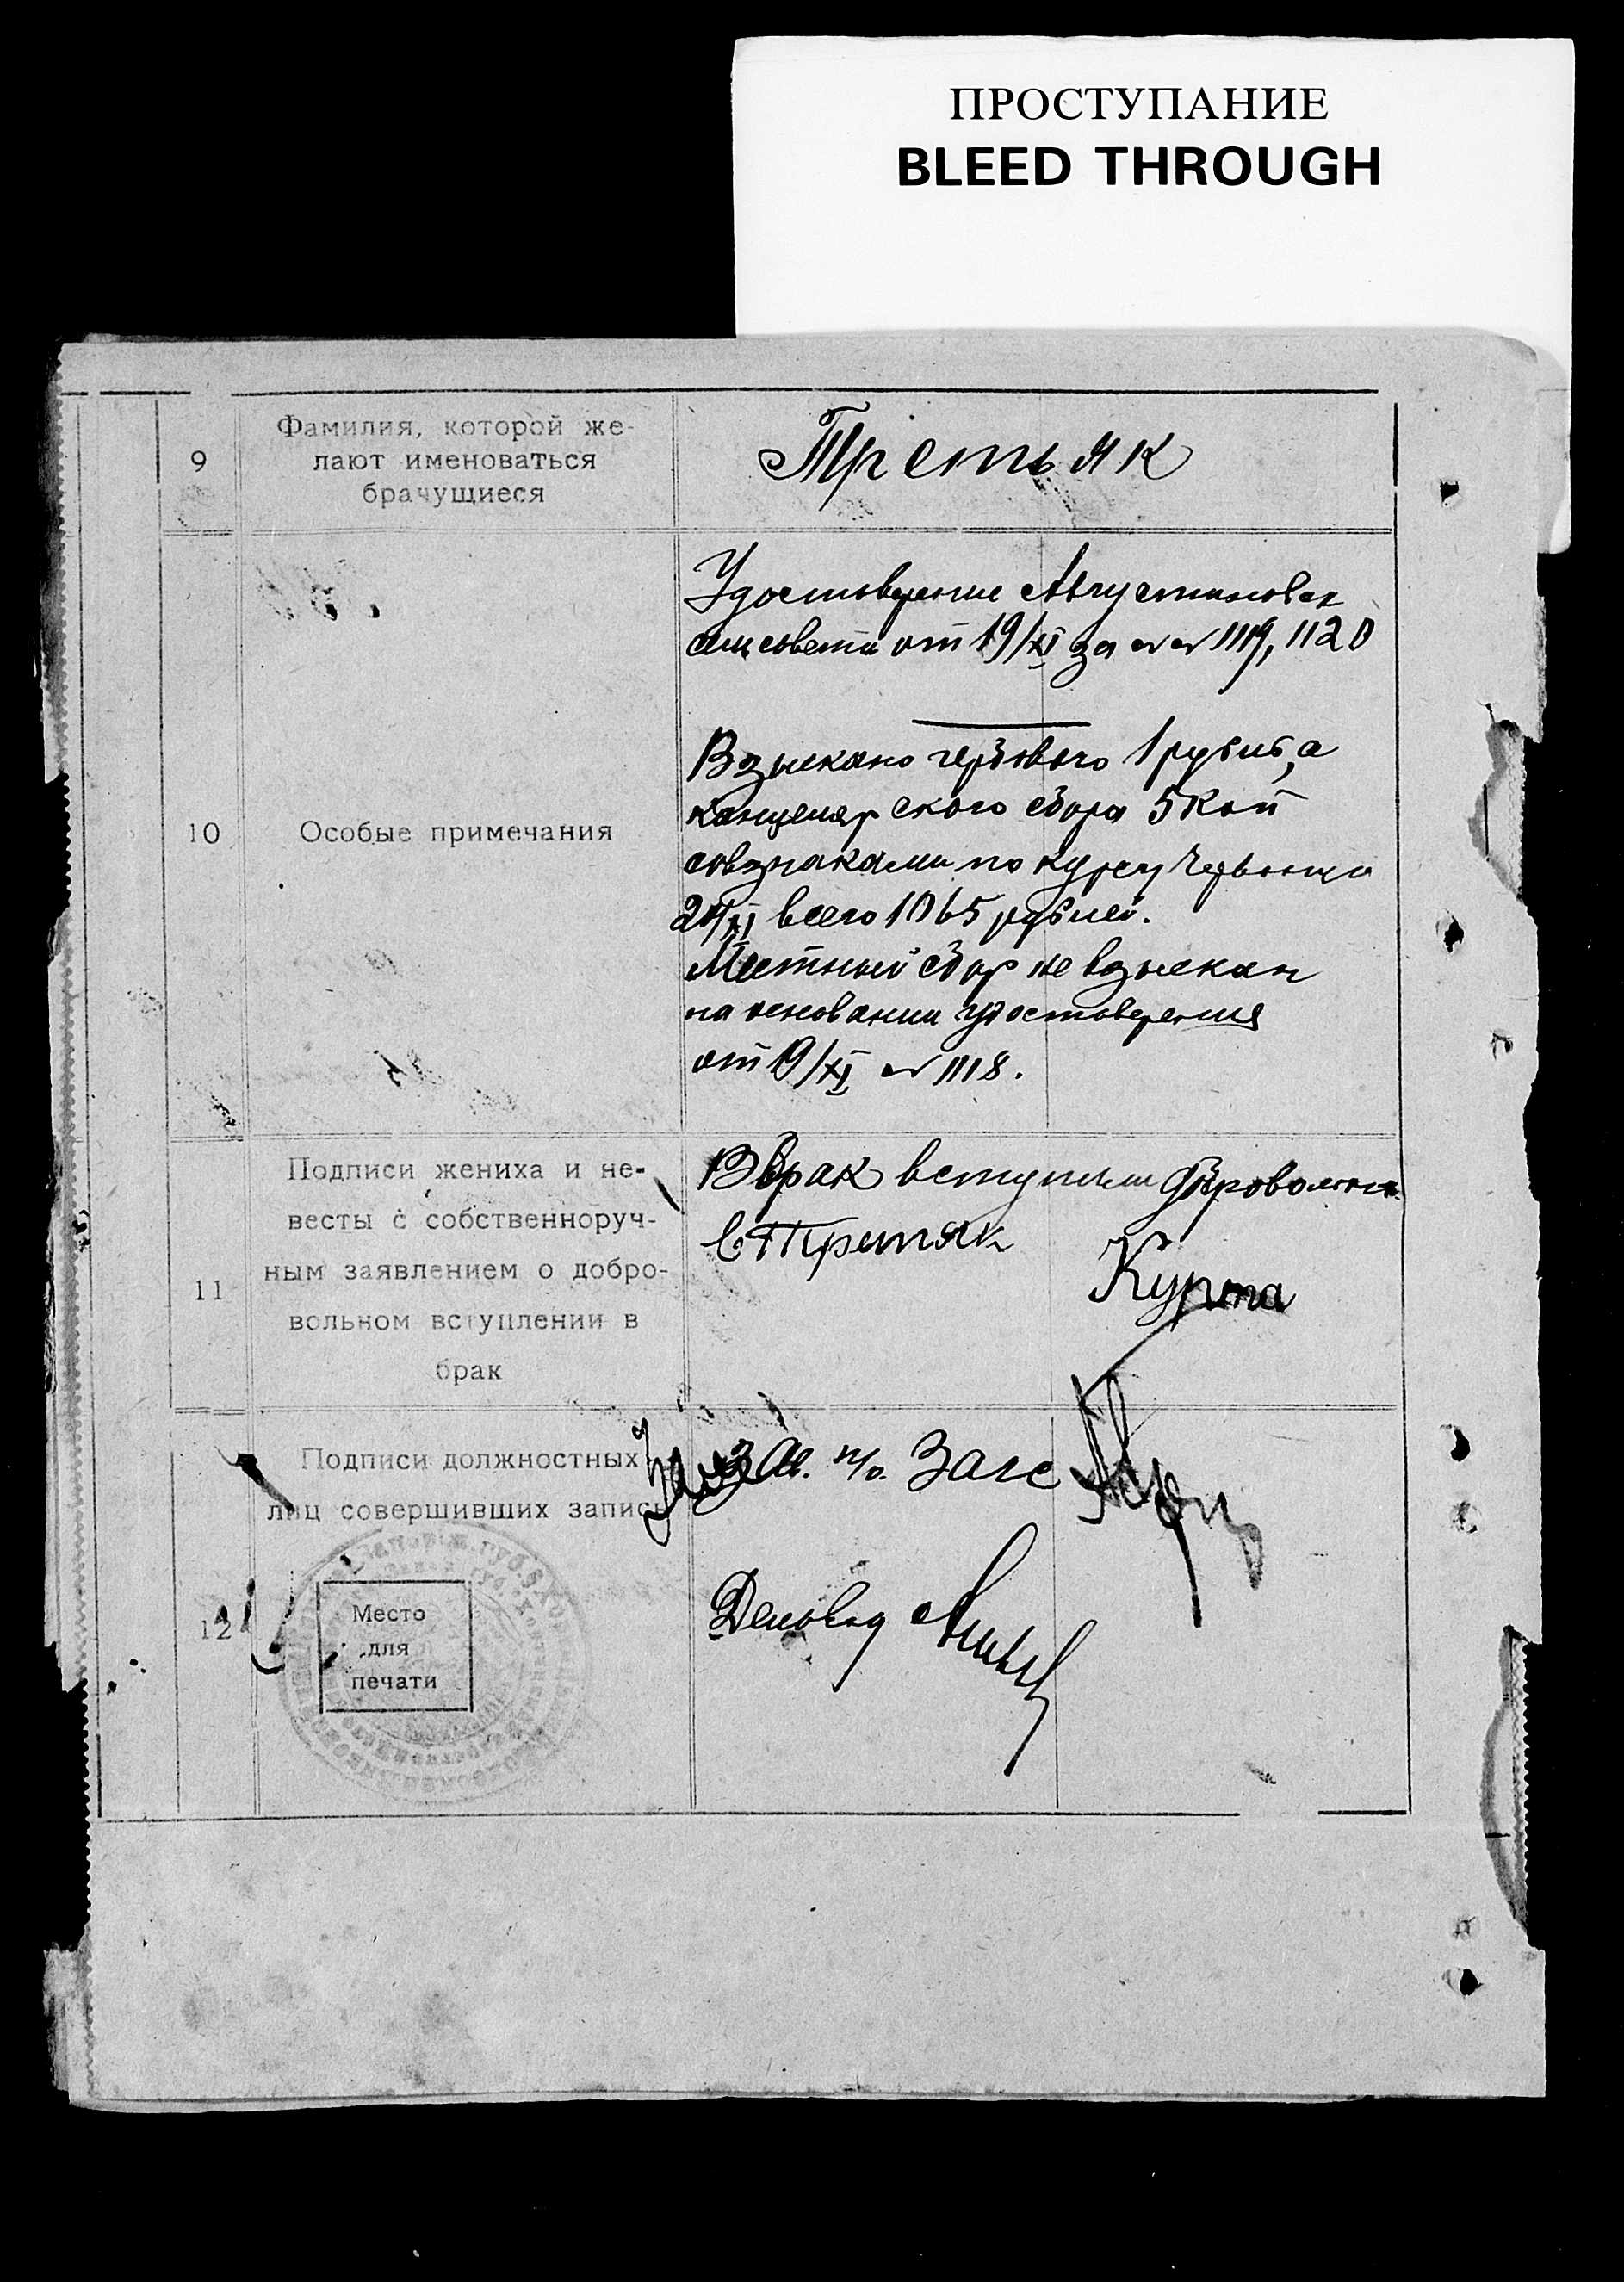 ПРОСТУПАНИЕ
BLEED THROUGH
9
Фамилия, которой же-
лают именоваться
брачущиеся
Третьяк
10
Особые примечания
Удостоверение Августиновск
сельсовета от 19/XI за №№ 1119, 1120
Взыскано гербового 1 рубль, а
канцелярского сбора 5 коп
совзнаками по курсу червонца
всего 1065 рублей.
Местный сбор не взыскан
на основании удостоверения
от 19/XI № 1118.
11
Подписи жениха и не-
весты с собственноруч-
ным заявлением о добро-
вольном вступлении в
брак
В брак вступили добровольно
Третяк
Курта
12
Подписи должностных
лиц совершивших запись
Зав. п/о. Загс
Место
для
печати
Деловод